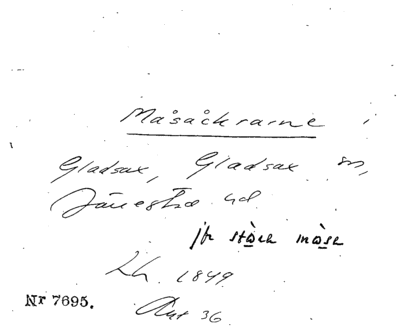 Måsåkrarne
Gladsax, Gladsax sn,
Järrestad hd
jfr stora måse
Lh. 1849
Akt 36
Nr 7695.